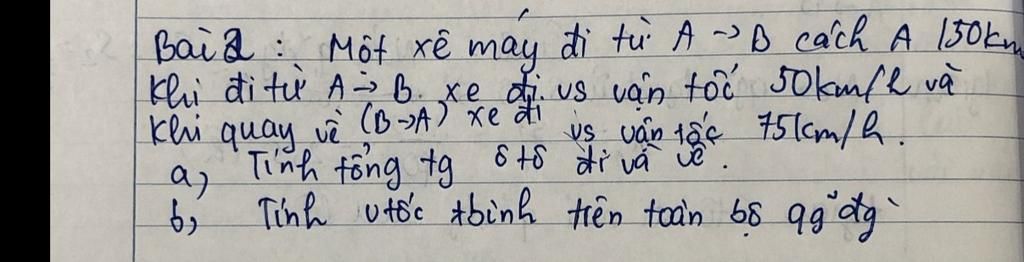 Bài 2 : Một xe máy đi từ A → B cách A 150km
Khi đi từ A → B. xe đi vs vận tốc 50km/h và
khi quay về (B→A) xe đi vs vận tốc 75km/h.
a, Tính tổng tg ô tô đi và về.
b, Tính vtốc tbình trên toàn bộ qg đg